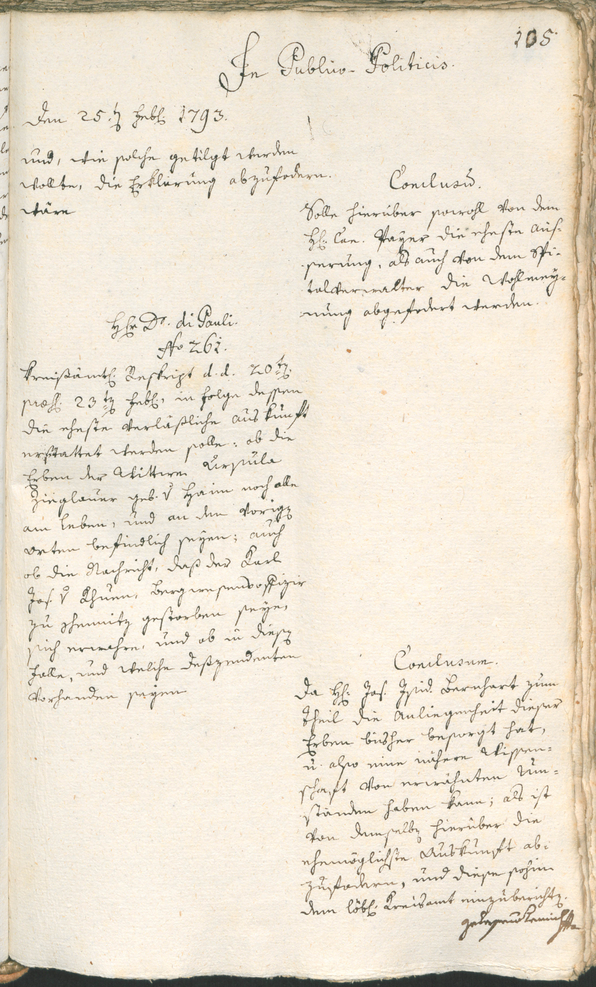 105.
In Publico-Politicis.
Den 25.ten Febr. 1793.
und, wie solche getilgt werden
wollte, die Erklärung abzufodern
wäre
Conclusū.
Solle hierüber sowohl von dem
H: Cas. Payer die eheste Aus-
serung, als auch von dem Spi-
talverwalter die Wohlmey-
nung abgefodert werden.
H: Dr. di Pauli.
No 261.
Kreisämtl: Reskript d. d. 20ten
præs: 23ten Febr:, in Folge dessen
die eheste verläßliche Auskunft
erstattet werden solle: ob die
Erben der Wittwe Ursula
Zieglauer geb. v Haim noch alle
am Leben, und an den vorigen
Orten befindlich seyen; auch
ob die Nachricht, daß der Karl
Jos. v Khuen, Bergwesensoffizir
zu Schemnitz gestorben seye,
sich erwahre, und ob in diesen
Falle, und welche Deszendenten
vorhanden seyen
Conclusum.
Da H: Jos. Isid. Bernhart zum
Theil die Anliegenheit dieser
Erben bisher besorgt hat,
u. also eine nähere Wissen-
schaft von erwähnten Um-
ständen haben kann; als ist
von demselben hierüber die
ehemöglichste Auskunft ab-
zufodern, und diese sohin
dem löbl: Kreisamt einzuberichten.